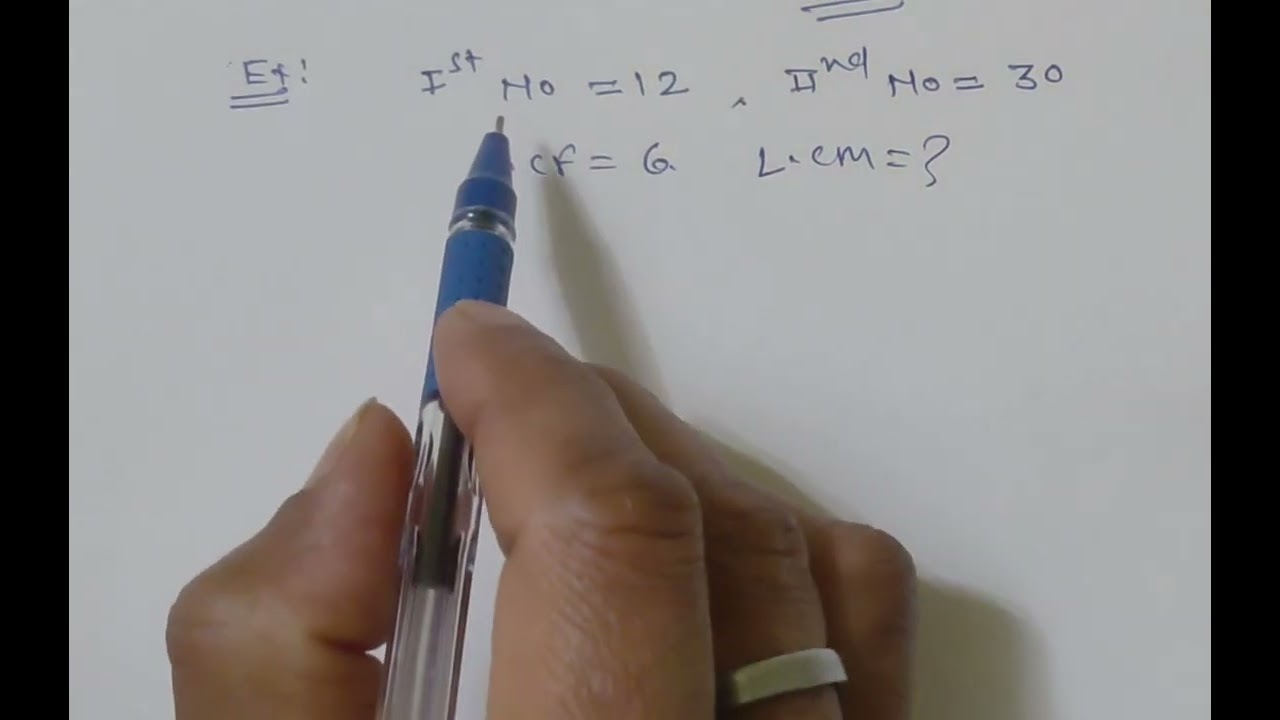 Ex: Ist No = 12, IInd No = 30
. cf = 6. L.cm = ?